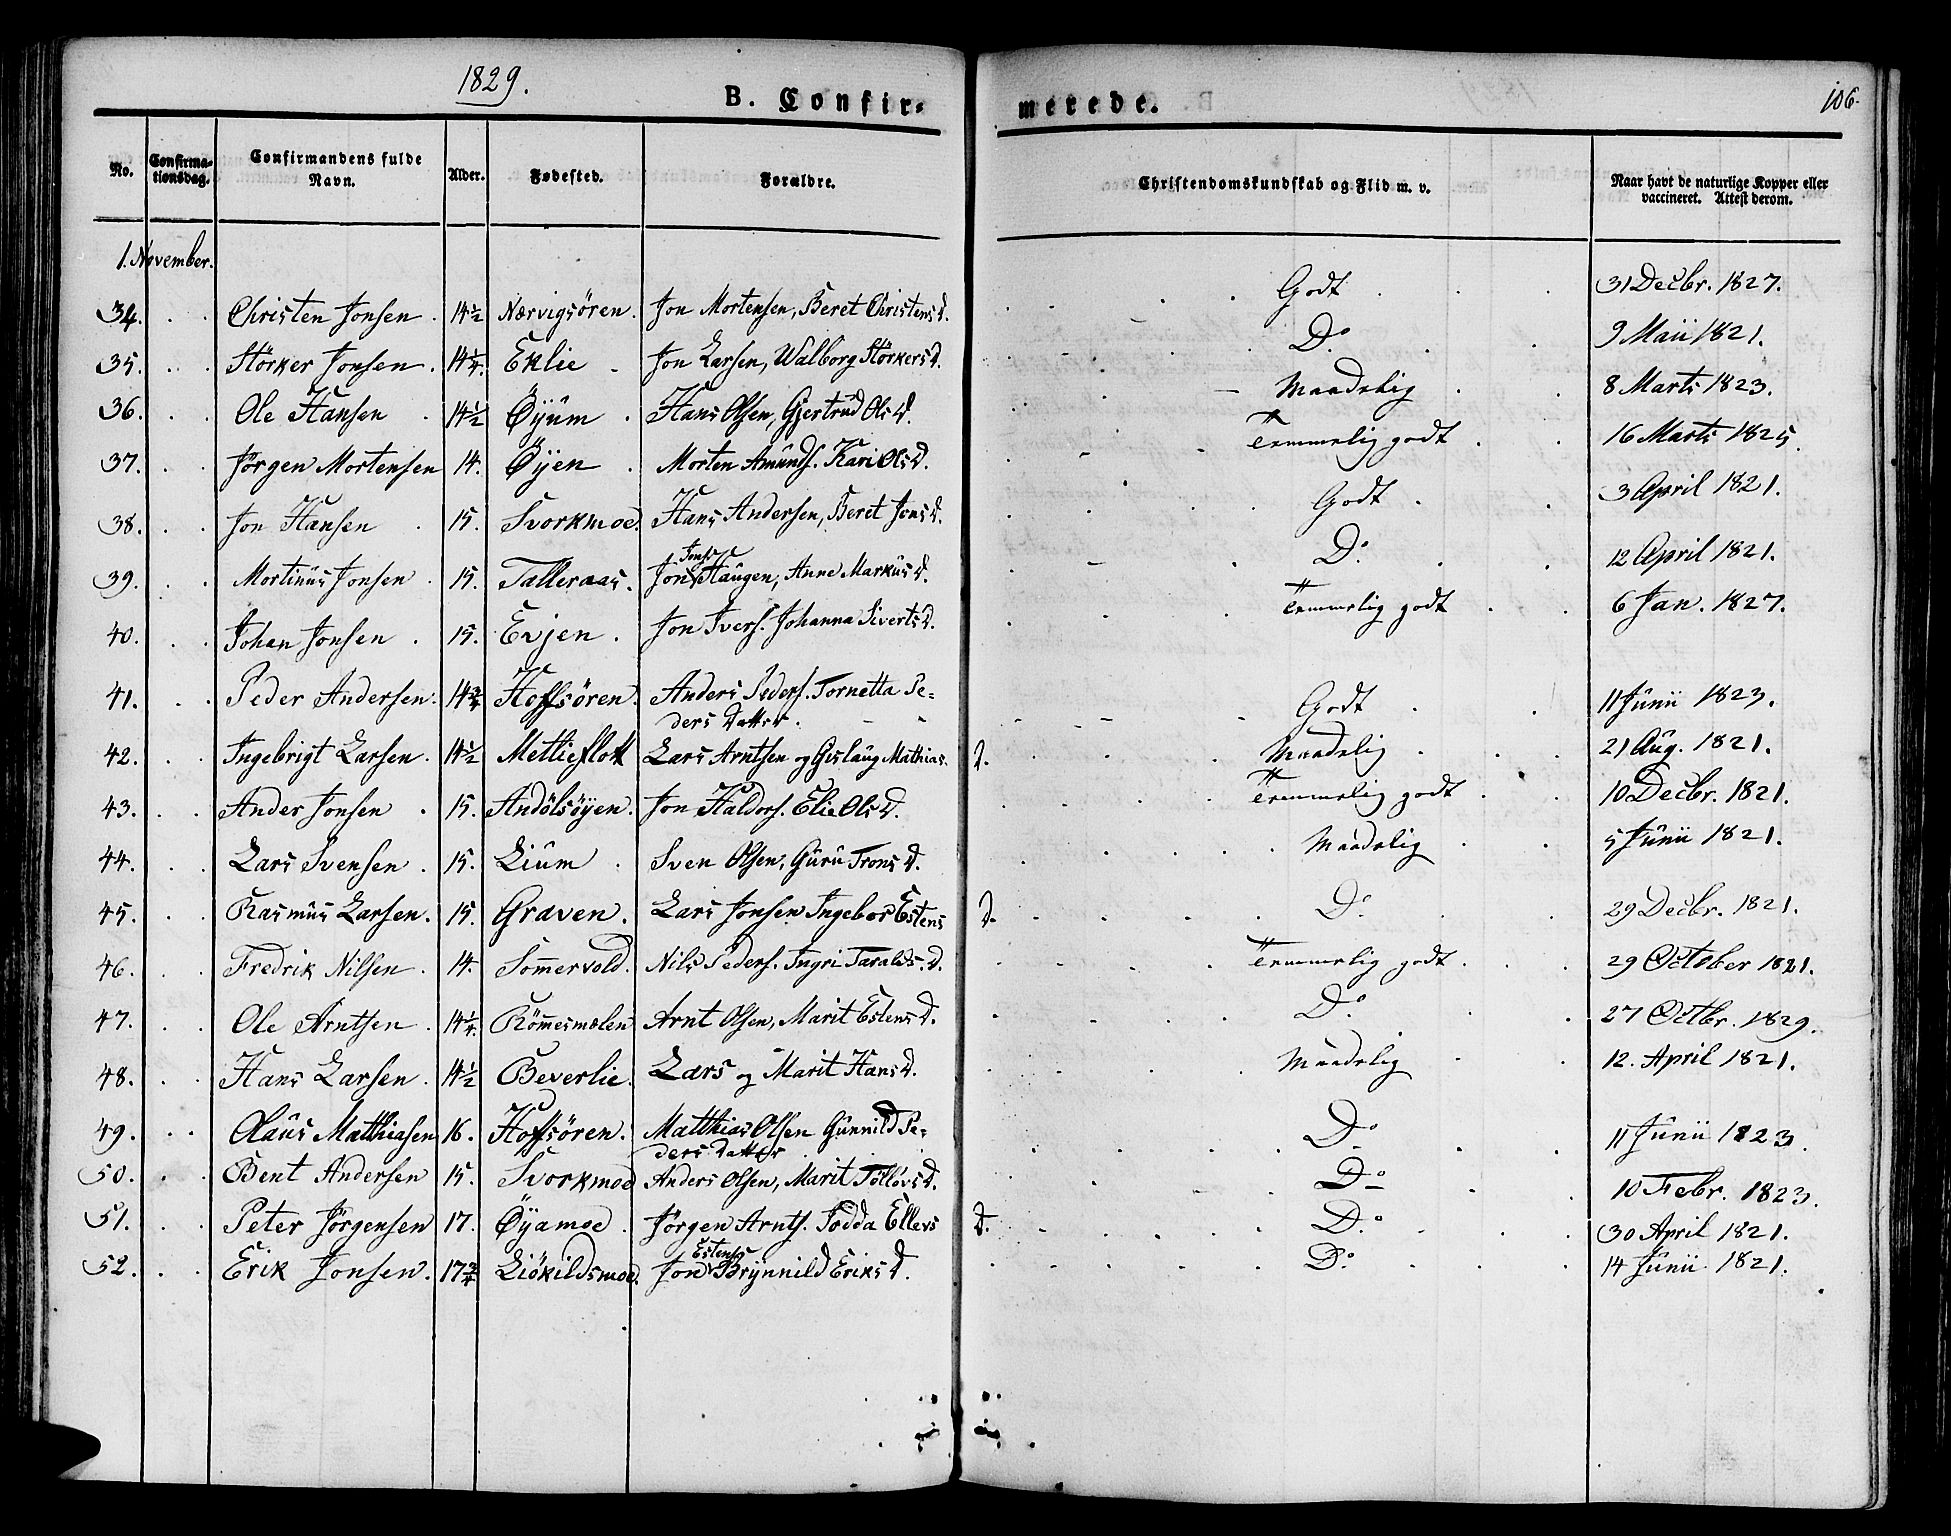 1829.
B. Confir=
merede.
106.
No.
Confirma=
tionsdag.
Confirmandens fulde
Navn.
Alder.
Fødested.
Forældre.
Christendomskundskab og Flid m. v.
Naar havt de naturlige Kopper eller
vaccineret. Attest derom.
1. November.
34. Christen Jonsen. 14½ Nærvigsören. Jon Mortensen, Beret Christens D. Godt 31 Decbr. 1827.
35. Störker Jonsen. 14¼. Eklie Jon Larsen, Walborg Störkers D. Do 9 Maii 1821.
36. Ole Hansen 14½ Öyŭm Hans Olsen, Gjertrŭd Ols D. Maadelig 8 Marts 1823.
37. Jörgen Mortensen 14. Öyen Morten Amŭnds. Kari Ols D. Temmelig godt 16 Marts 1825.
38. Jon Hansen 15. Svorkmoe. Hans Andersen, Beret Jons D. Godt 3 April 1821.
Jons.
39. Mortinŭs Jonsen 15. Tälleraas. Jon Haŭgen, Anne Markŭs D. Do 12 April 1821.
40. Johan Jonsen 15. Evjen. Jon Ivers. Johanna Siverts D. Temmelig godt 6 Jan. 1827.
41. Peder Andersen. 14¾ Hoffsören. Anders Peders. Tornetta Pe=
ders Datter. Godt 11 Jŭnii 1823.
42. Ingebrigt Larsen. 14½ Metlieflot Lars Arntsen og Gislaŭg Mathias D. Maadelig 21 Aŭg. 1821.
43. Ander Jonsen 15. Andölsöyen. Jon Haldors. Elie Ols D. Temmelig godt 10 Decbr. 1821.
44. Lars Svensen 15. Liŭm Sven Olsen, Gŭrŭ Trons D. Maadelig 5 Jŭnii 1821.
45. Rasmŭs Larsen. 15. Graven. Lars Jonsen Ingebor Estens D. Do 29 Decbr. 1821.
46. Fredrik Nilsen 14. Sommervold. Nils Peders. Ingri Taralds. D. Temmelig godt 29 October 1821.
47. Ole Arntsen 14¼. Römesmælen Arnt Olsen, Marit Estens D. Do 27 Octbr. 1829.
48. Hans Larsen 14½ Beverlie. Lars og Marit Hans D. Maadelig 12. April 1821.
49. Olaŭs Matthiasen 16. Hoffsören. Matthias Olsen Gŭnnild Pe=
ders Datter Do 11 Jŭnii 1823
50. Bent Andersen 15. Svorkmoe Anders Olsen, Marit Tölløvs D. Do 10 Febr. 1823.
51. Peter Jörgensen 17. Öyamoe Jörgen Arnts. Todda Ellevs D. Do 30 April 1821.
Estens.
52. Erik Jonsen. 17¾ Liökildsmoe. Jon Brynnild Eriks D. Do 14 Jŭnii 1821.